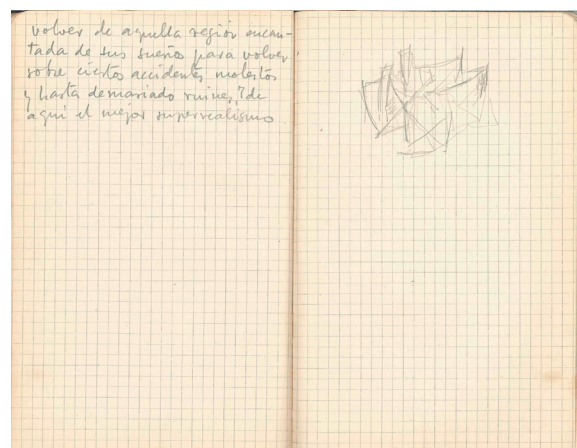 volver de aquella región encan-
tada de sus sueños para volver
sobre ciertos accidentes molestos
y hasta demasiado ruines, ? de
aqui el mejor superrealismo